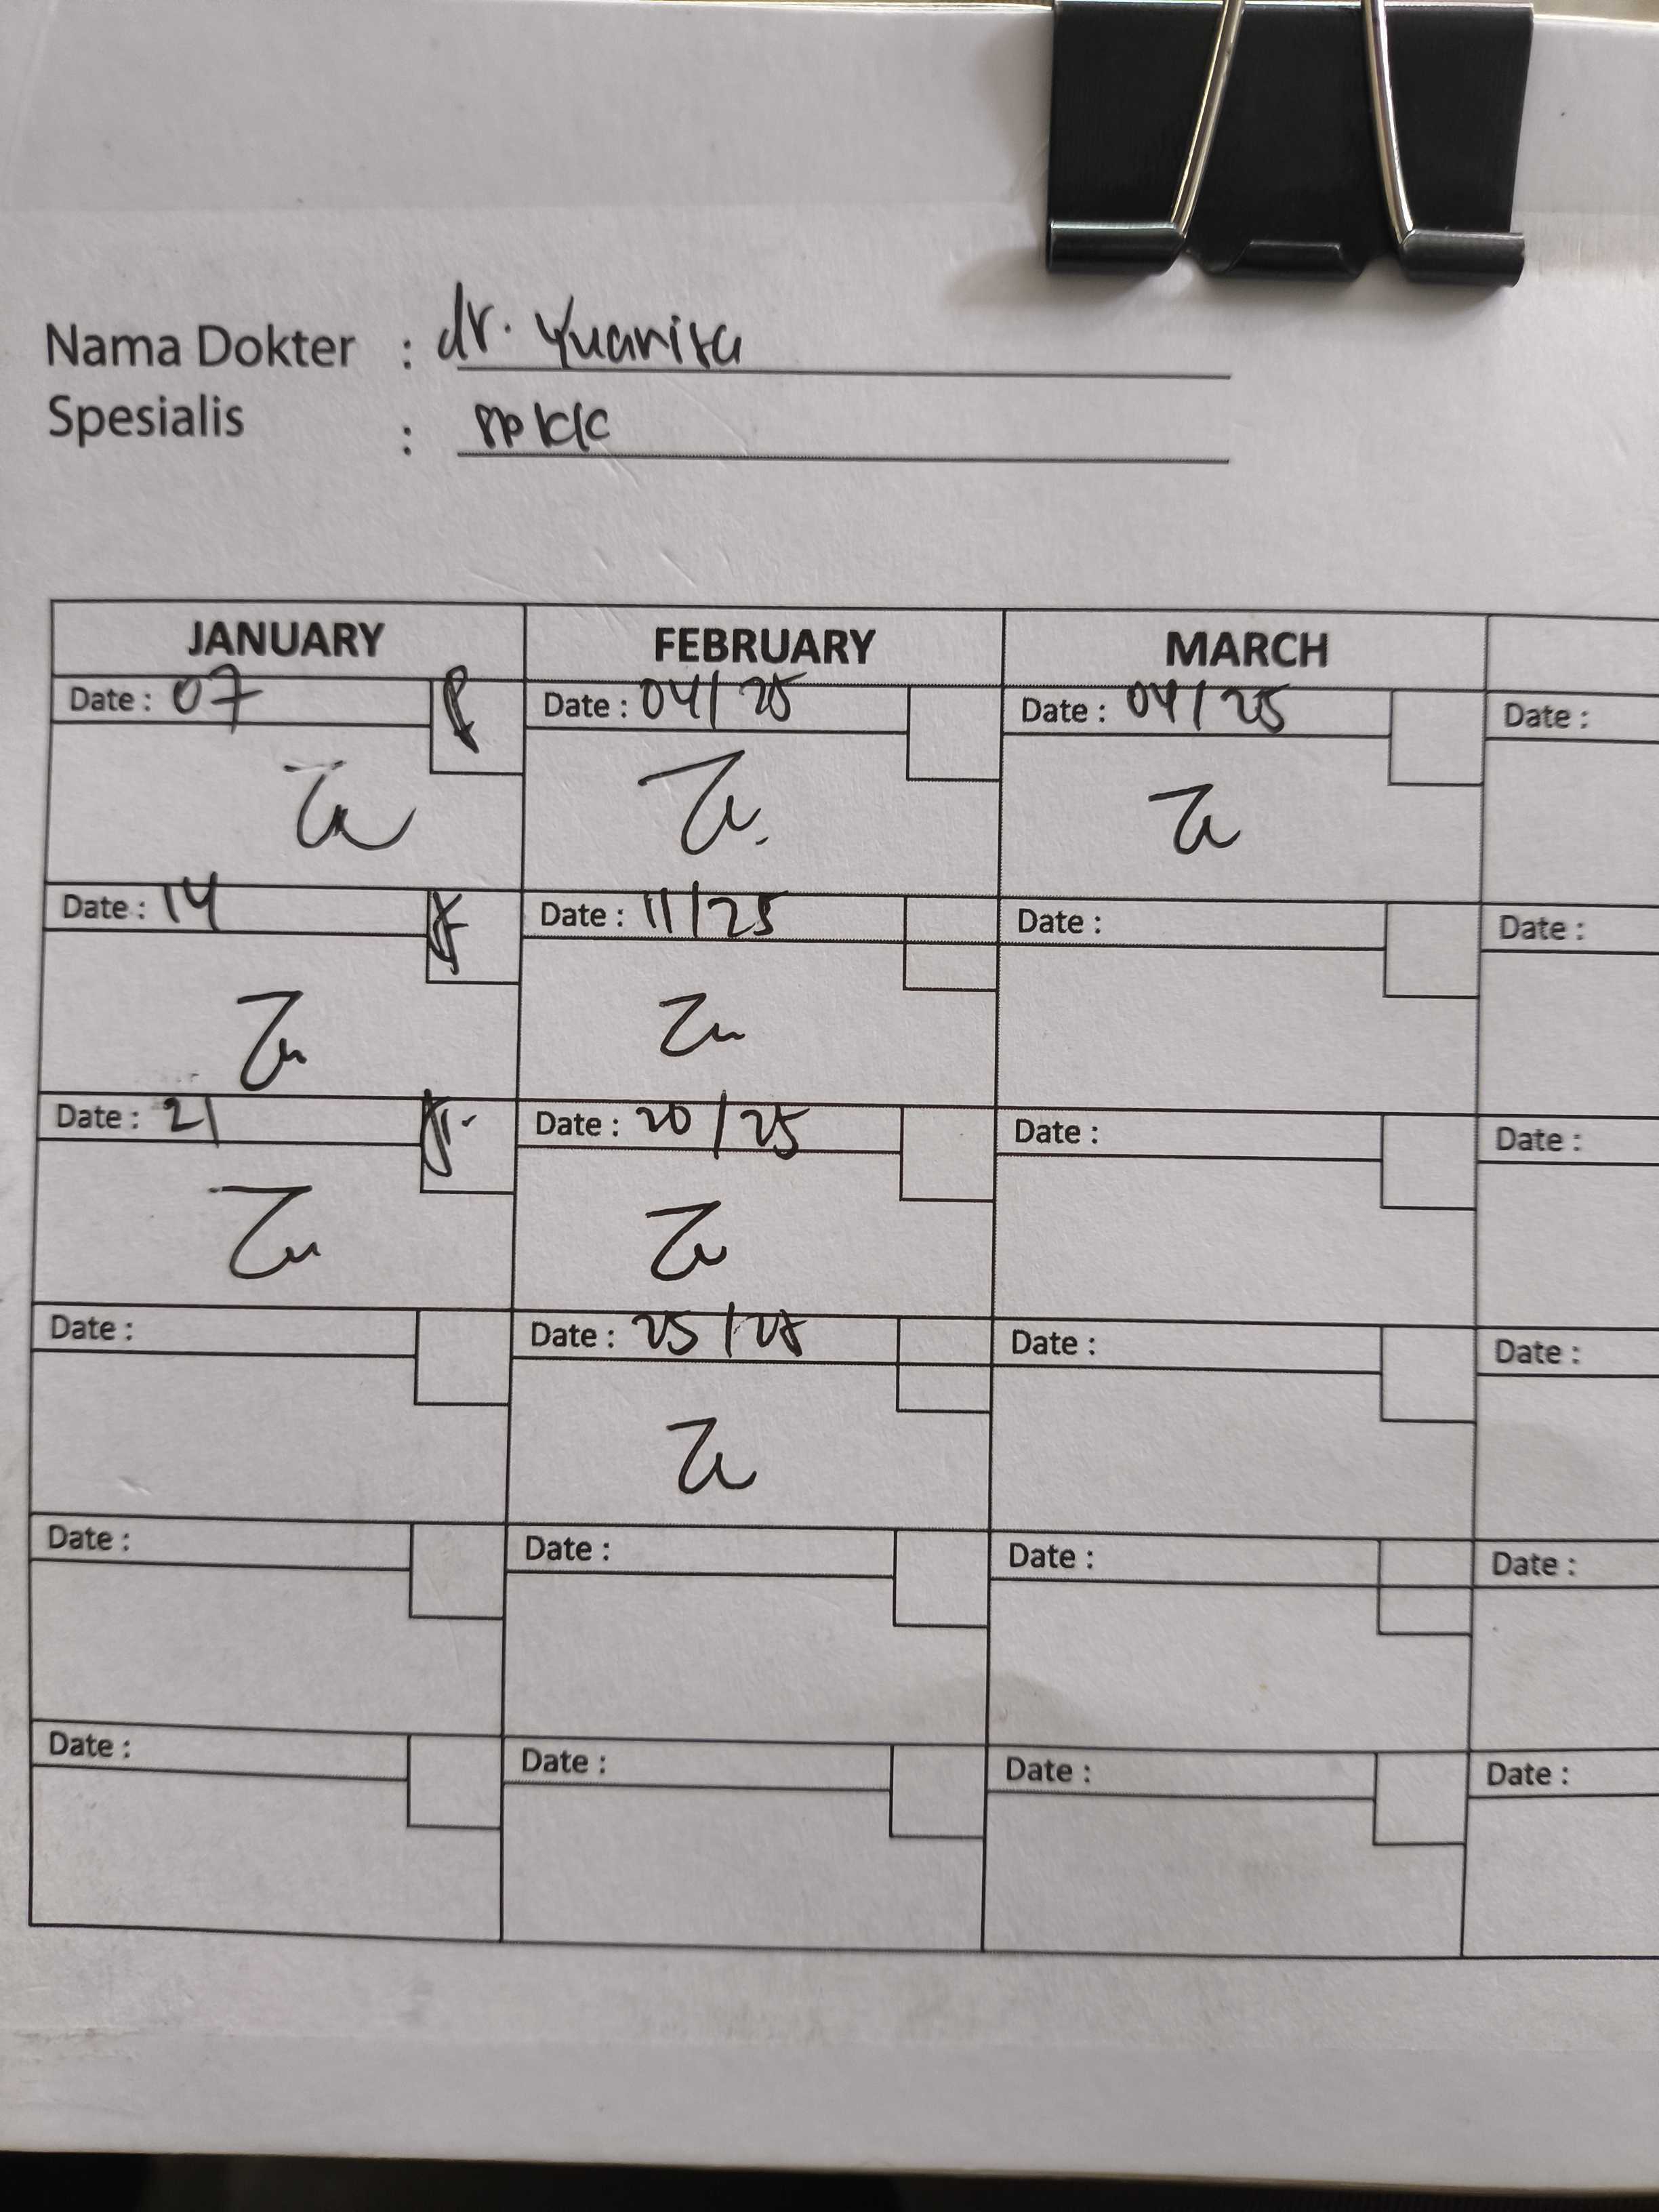 Nama Dokter : dr. Yuanita
Spesialis :
JANUARY FEBRUARY MARCH
Date : 07 Date : 04/25 Date : 04/25 Date :
Date : 14 Date : 11/25 Date : Date :
Date : 21 Date : 20/25 Date : Date :
Date : Date : 25/25 Date : Date :
Date : Date : Date : Date :
Date : Date : Date : Date :